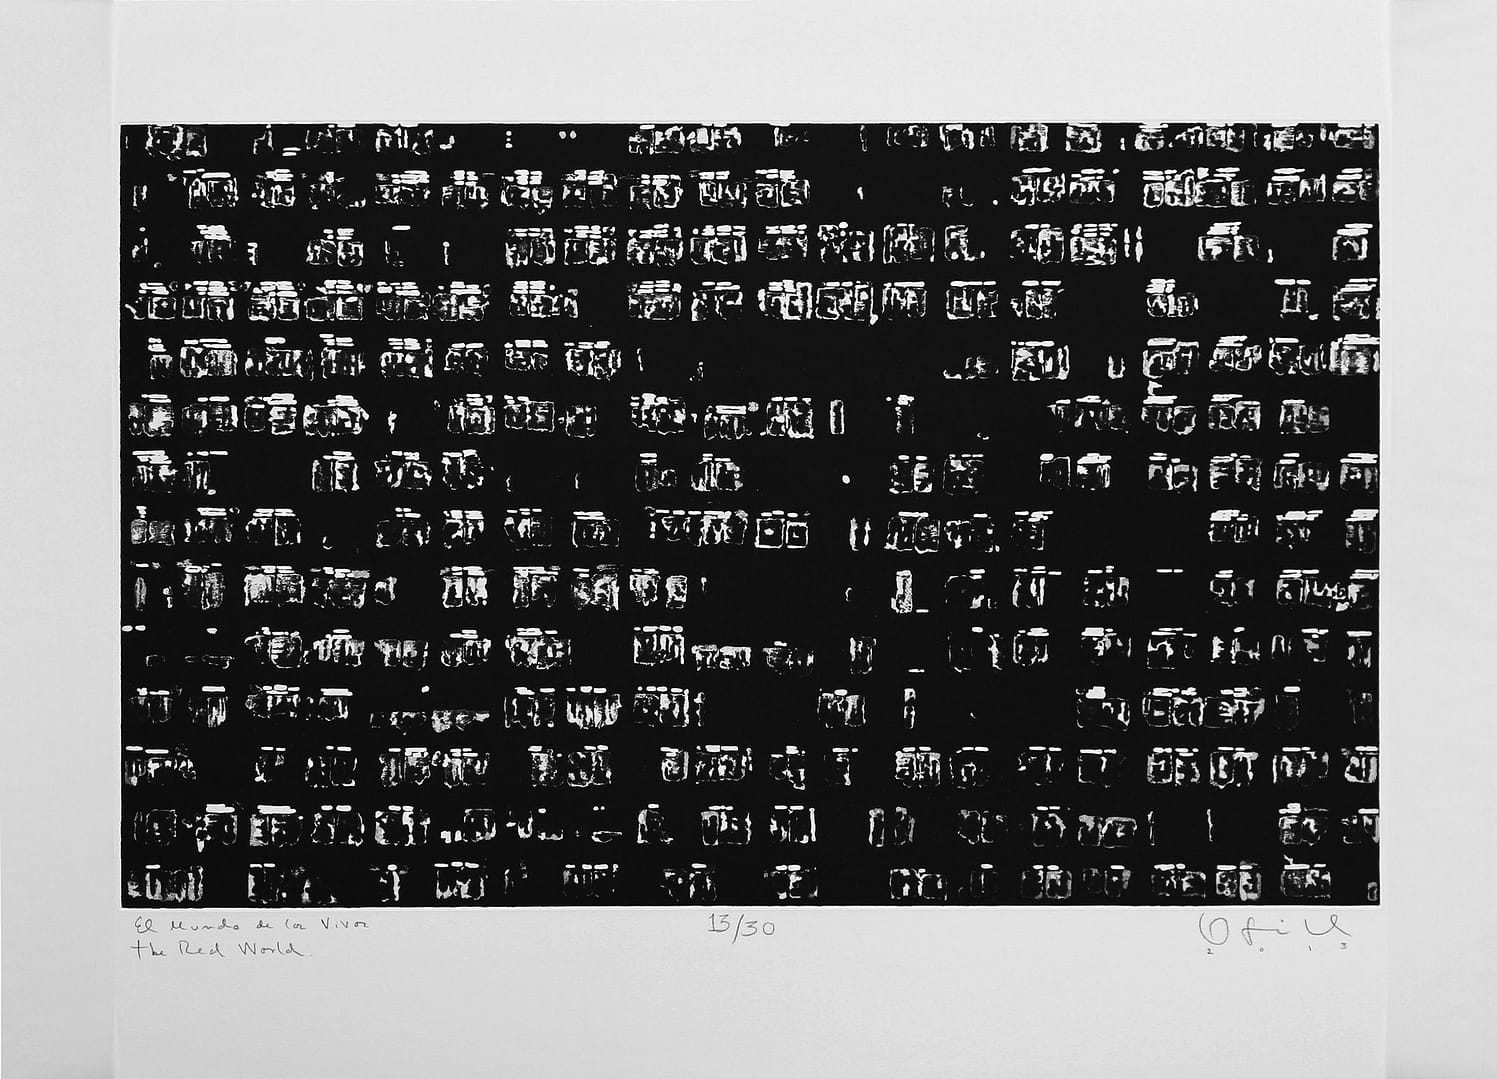 El Mundo de los Vivos
the Red World.
13/30
2013